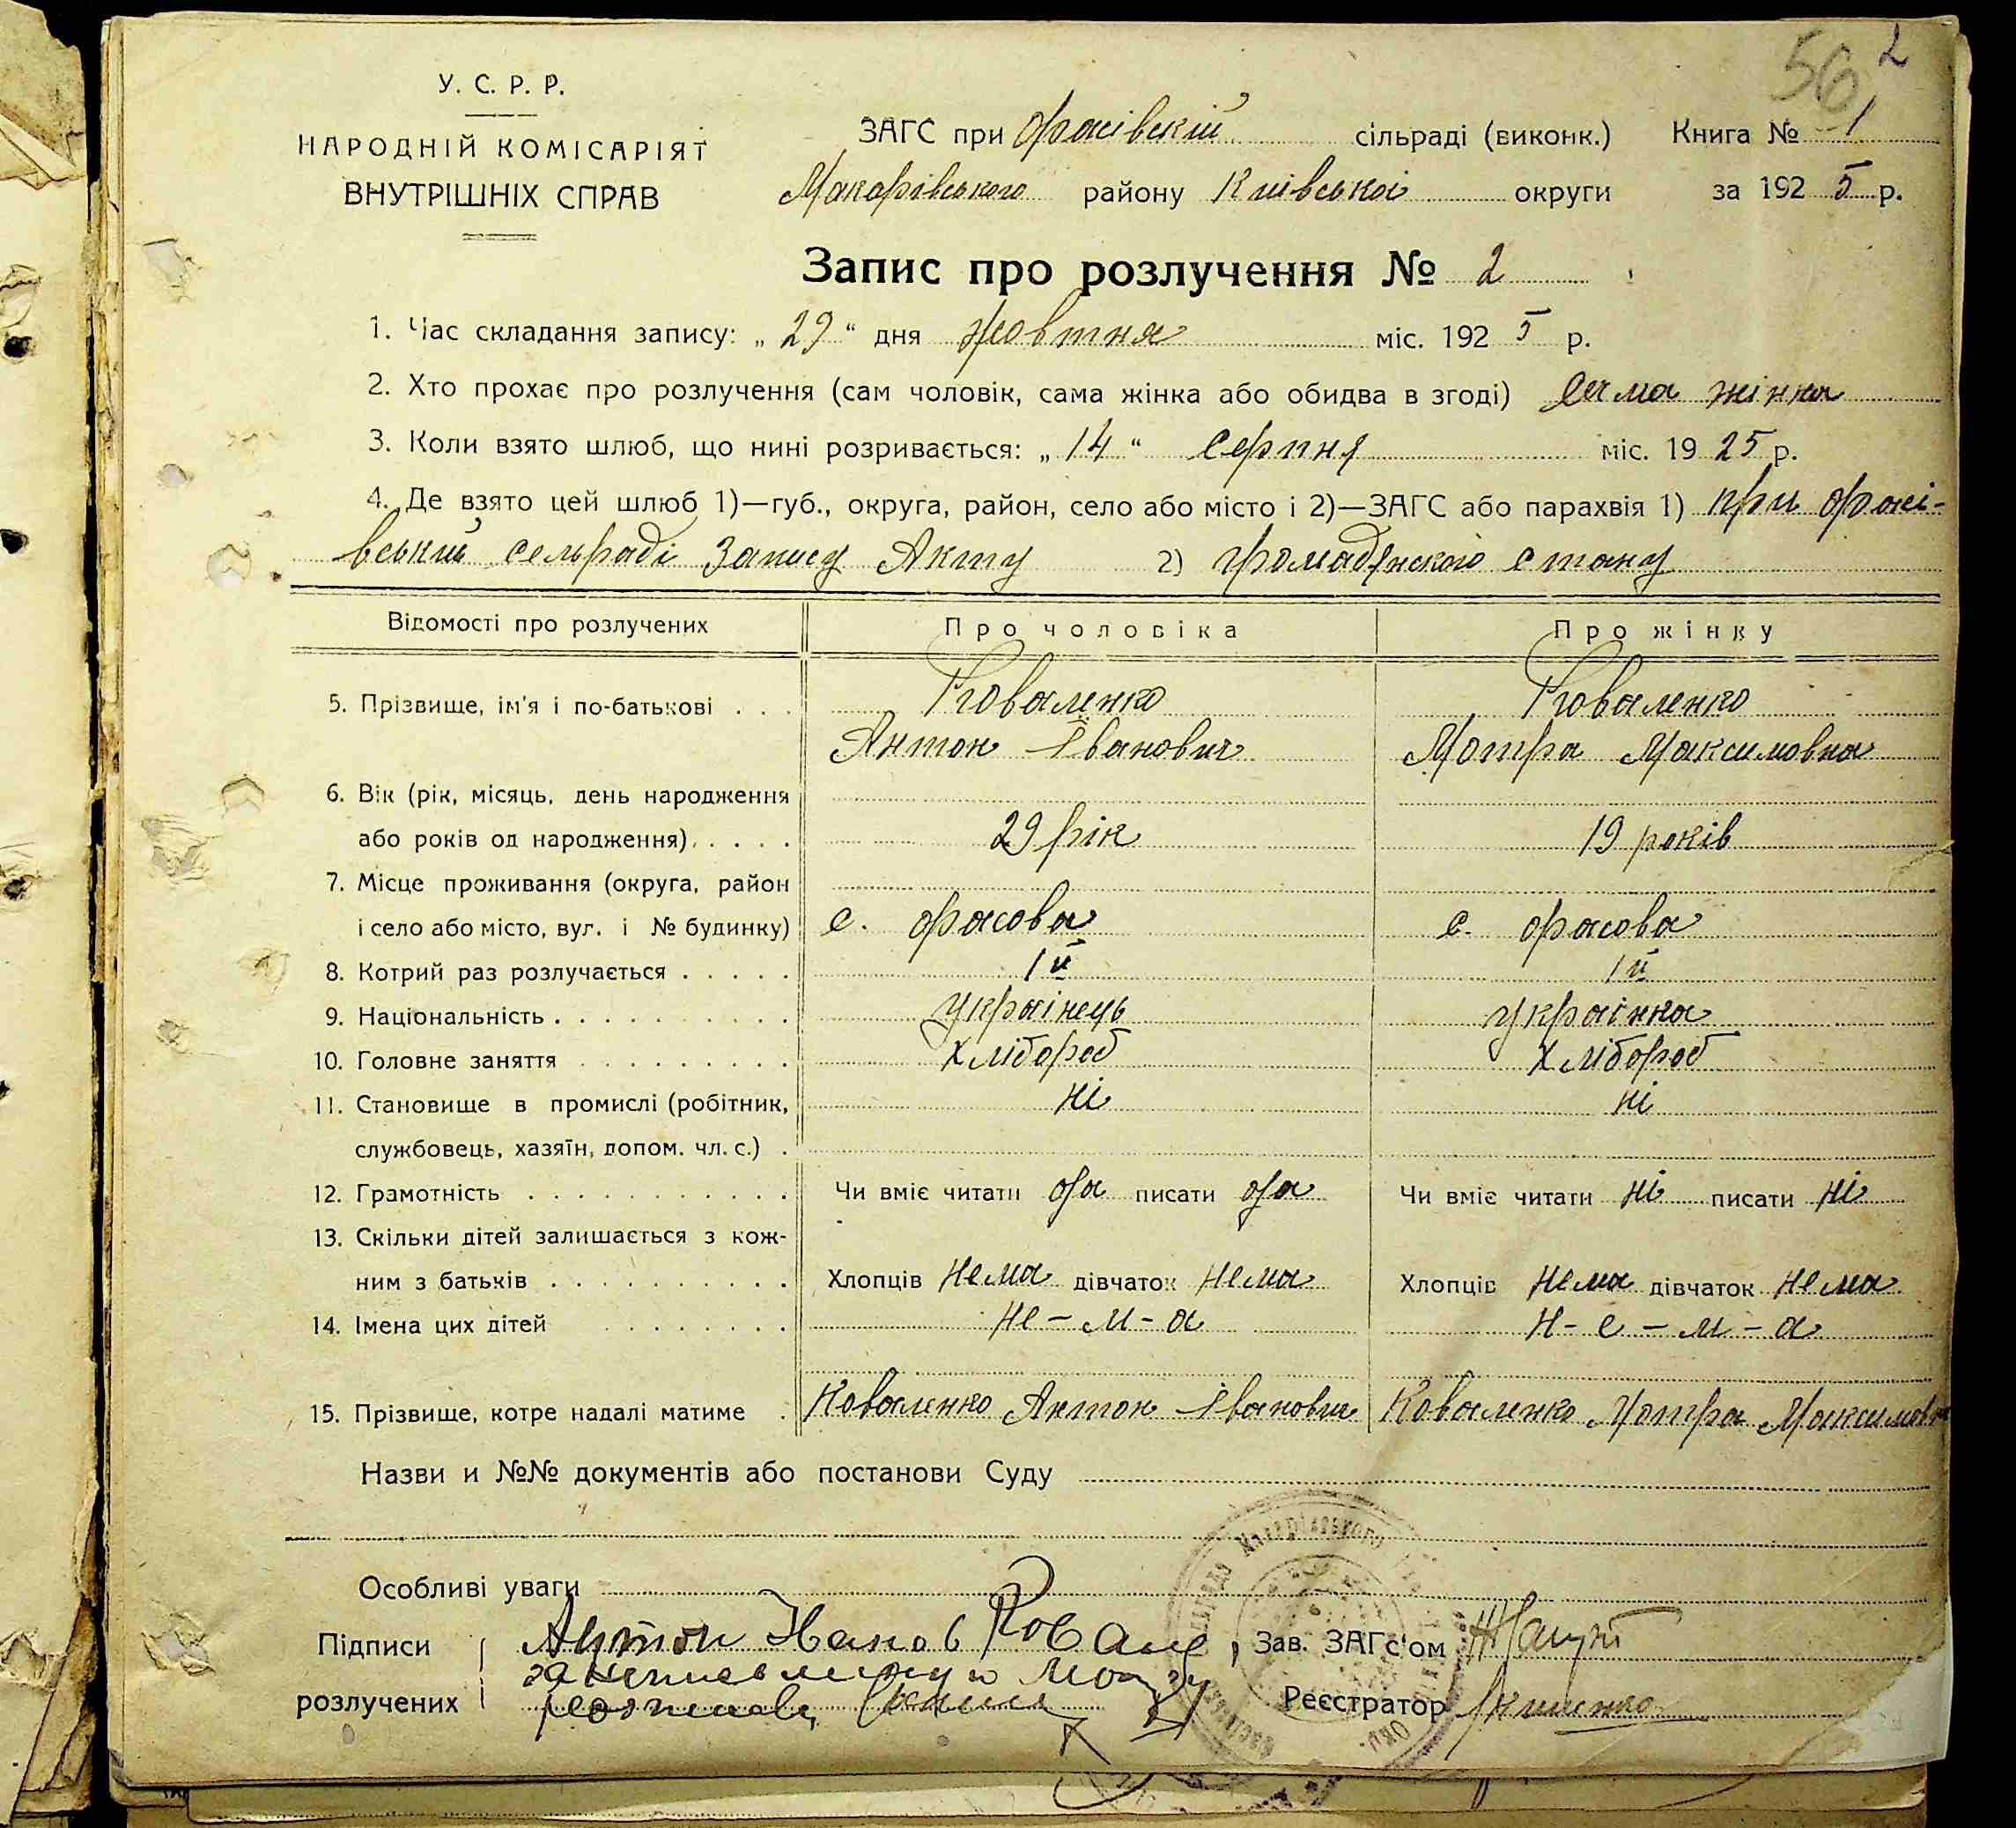 56 2
У. С. Р. Р.
НАРОДНІЙ КОМІСАРІЯТ
ВНУТРІШНІХ СПРАВ
ЗАГС при Фасівскій сільраді (виконк.) Книга № 1
Макарівського району Київської округи за 1925 р.
Запис про розлучення № 2
1. Час складання запису: „29“ дня жовтня міс. 1925 р.
2. Хто прохає про розлучення (сам чоловік, сама жінка або обидва в згоді) сама жінка
3. Коли взято шлюб, що нині розривається: „14“ серпня міс. 1925 р.
4. Де взято цей шлюб 1)—губ., округа, район, село або місто і 2)—ЗАГС або парахвія 1) при Фасі-
вський сельраді Запису Акту 2) громадянского стану
Відомості про розлучених Про чоловіка Про жінку
5. Прізвище, ім'я і по-батькові . . . Коваленко Коваленко
Антон Іванович Мотра Максимовна
6. Вік (рік, місяць, день народження
або років од народження) . . . . 29 рік 19 років
7. Місце проживання (округа, район
і село або місто, вуг. і № будинку) с. Фасова с. Фасова
8. Котрий раз розлучається . . . . . 1й 1й
9. Національність . . . . . . . . . . українець українка
10. Головне заняття . . . . . . . . . хлібороб хлібороб
11. Становище в промислі (робітник, ні ні
службовець, хазяїн, допом. чл. с.) .
12. Грамотність . . . . . . . . . . . Чи вміє читати да писати да Чи вміє читати ні писати ні
13. Скільки дітей залишається з кож-
ним з батьків . . . . . . . . . . Хлопців нема дівчаток нема Хлопців нема дівчаток нема
14. Імена цих дітей . . . . . . . . не-м-а н-е-м-а
15. Прізвище, котре надалі матиме . Коваленко Антон Іванович Коваленко Мотра Максимовна
Назви и №№ документів або постанови Суду
Особливі уваги
Підписи Антон Іванов Ковале, Зав. ЗАГс'ом
розлучених Реєстратор